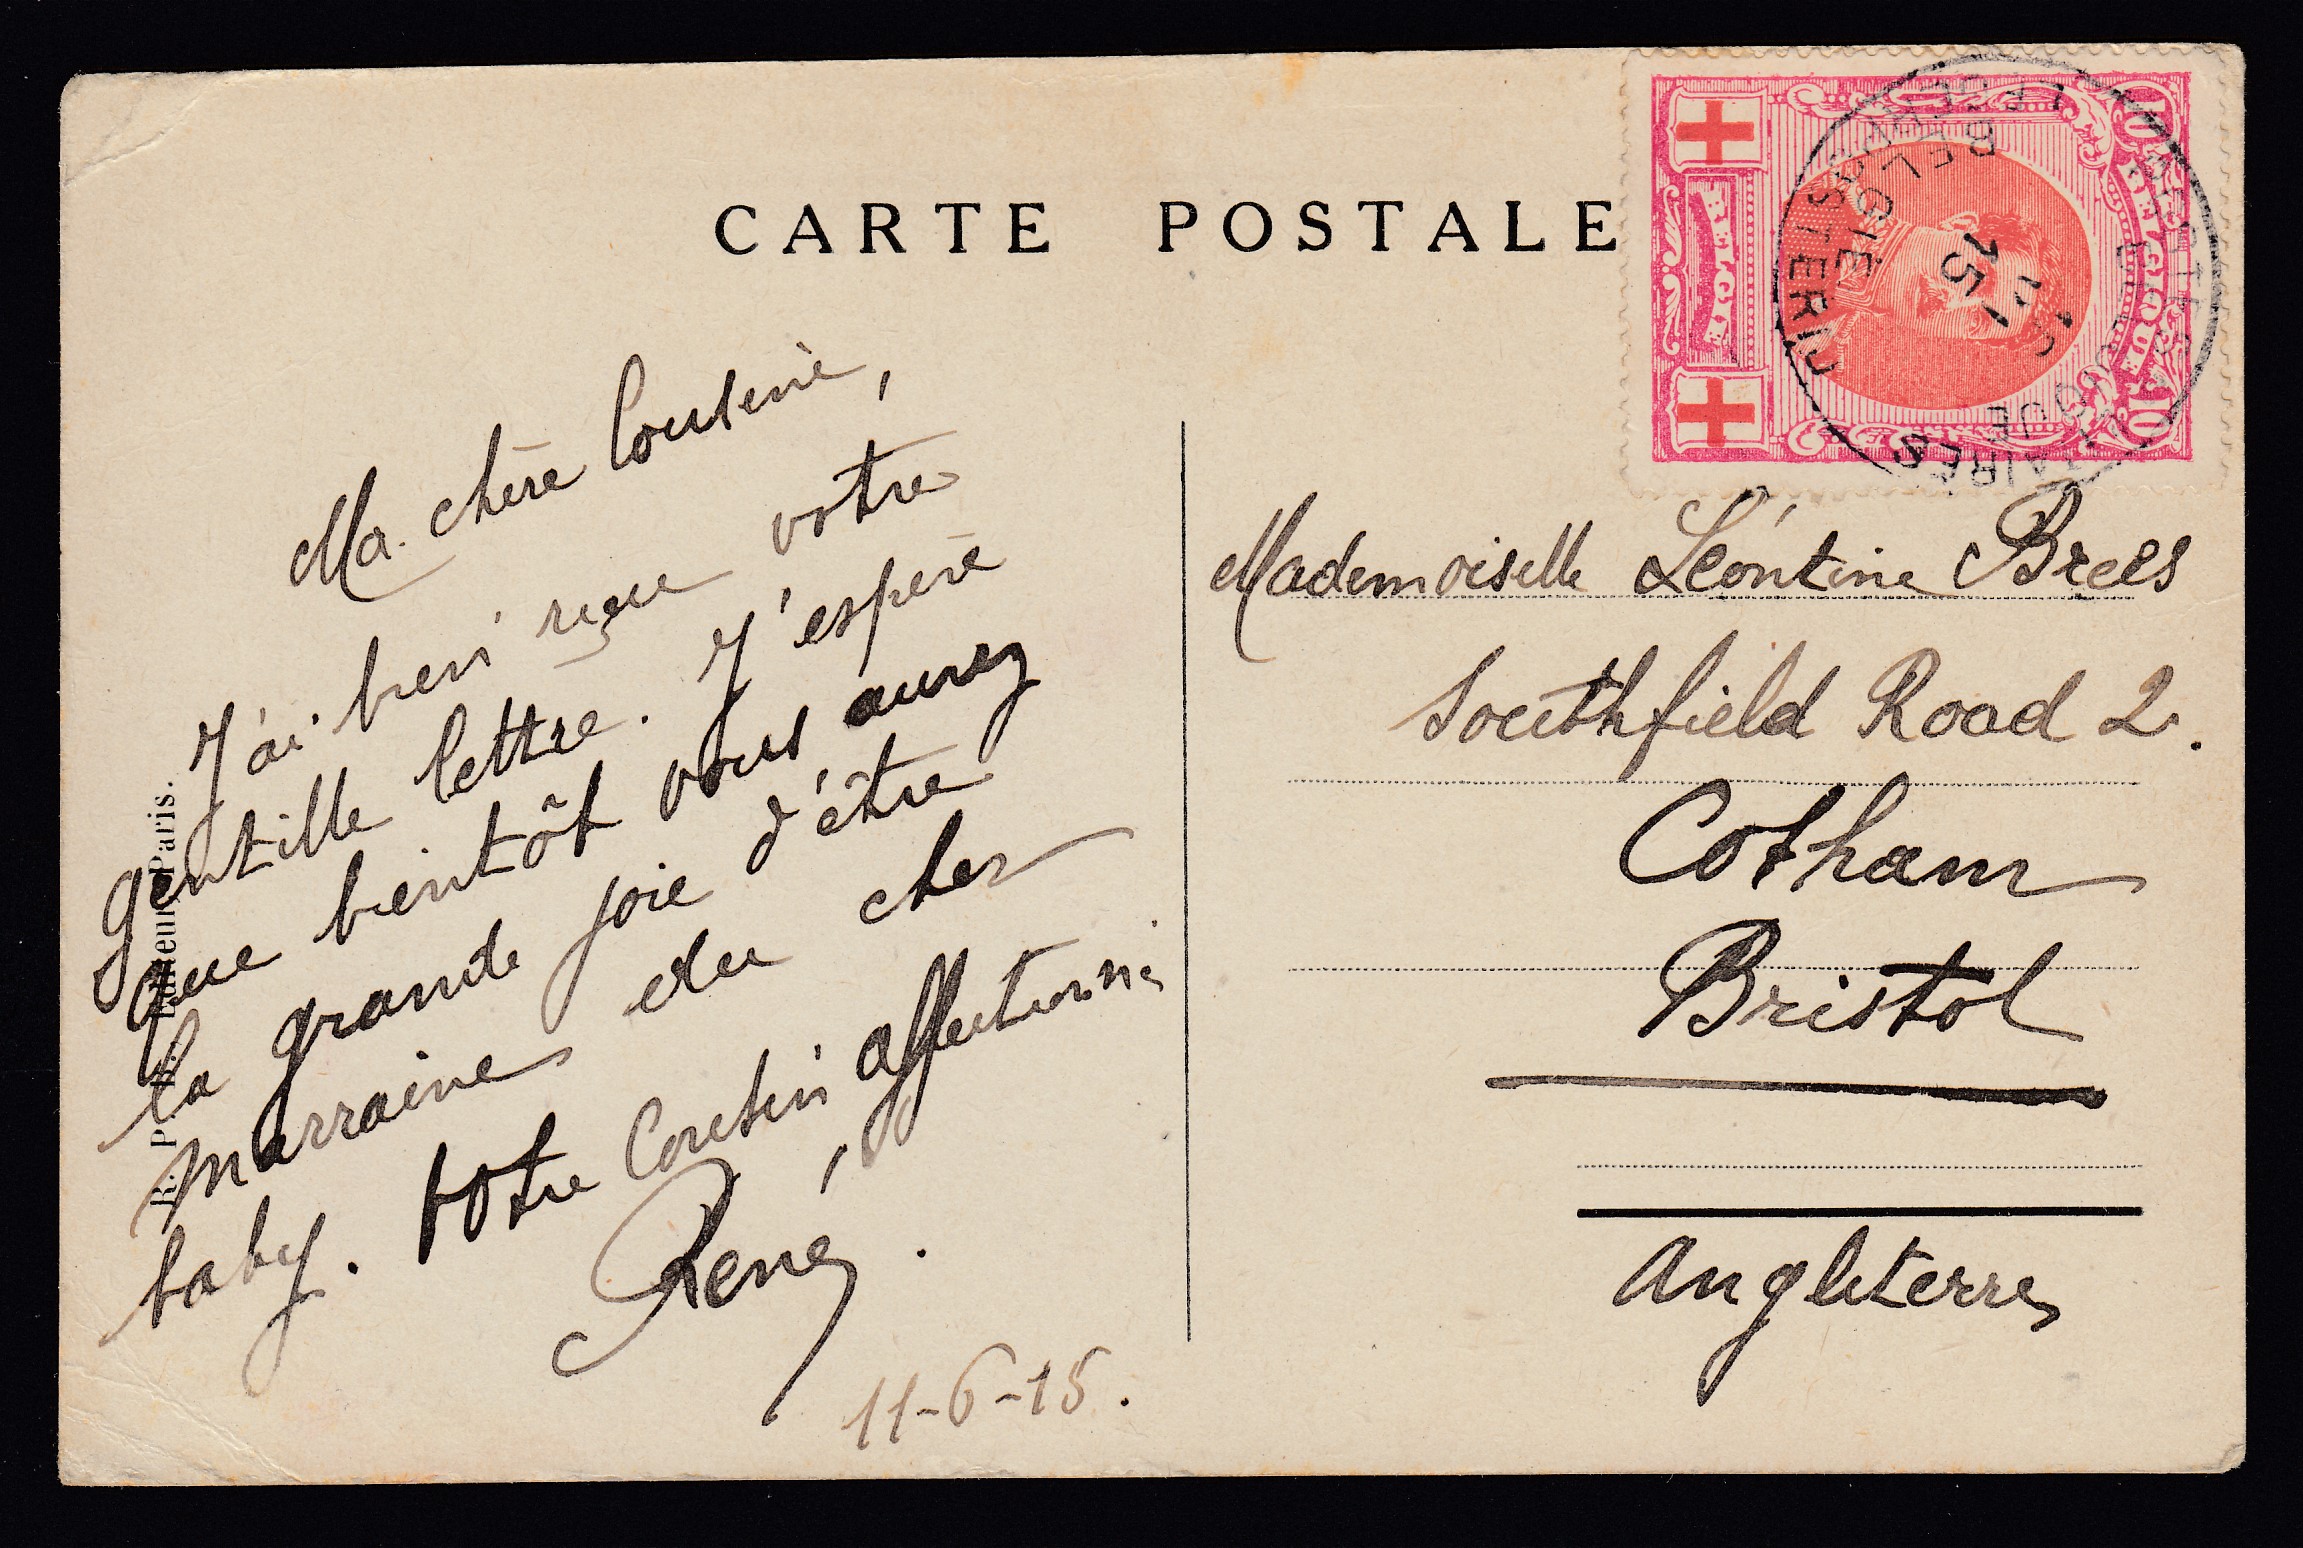 CARTE POSTALE
Ma chère Cousine,
J'ai bien reçue votre
gentille lettre. J'espère
que bientôt vous aurez
la grande joie d'être
marraine du cher
baby. Votre Cousin affectionné,
René.
11-6-15.
Mademoiselle Léontine Brees
Southfield Road 2.
Cotham
Bristol
Angleterre
BELGIQUE
BELGIË
10
10
POSTES
BELGIQUE
BELGIË
15
Paris.